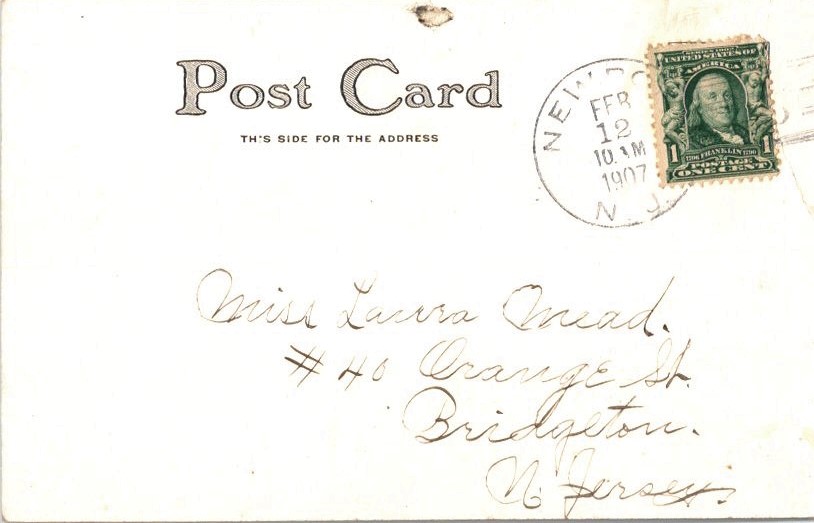 Post Card
TH'S SIDE FOR THE ADDRESS
FEB
12
1907
N. J.
SERIES 1902
UNITED STATES OF
AMERICA
1706 FRANKLIN 1790
1 POSTAGE 1
ONE CENT
Miss Laura Mead.
# 40 Orange St.
Bridgeton.
N. Jersey.